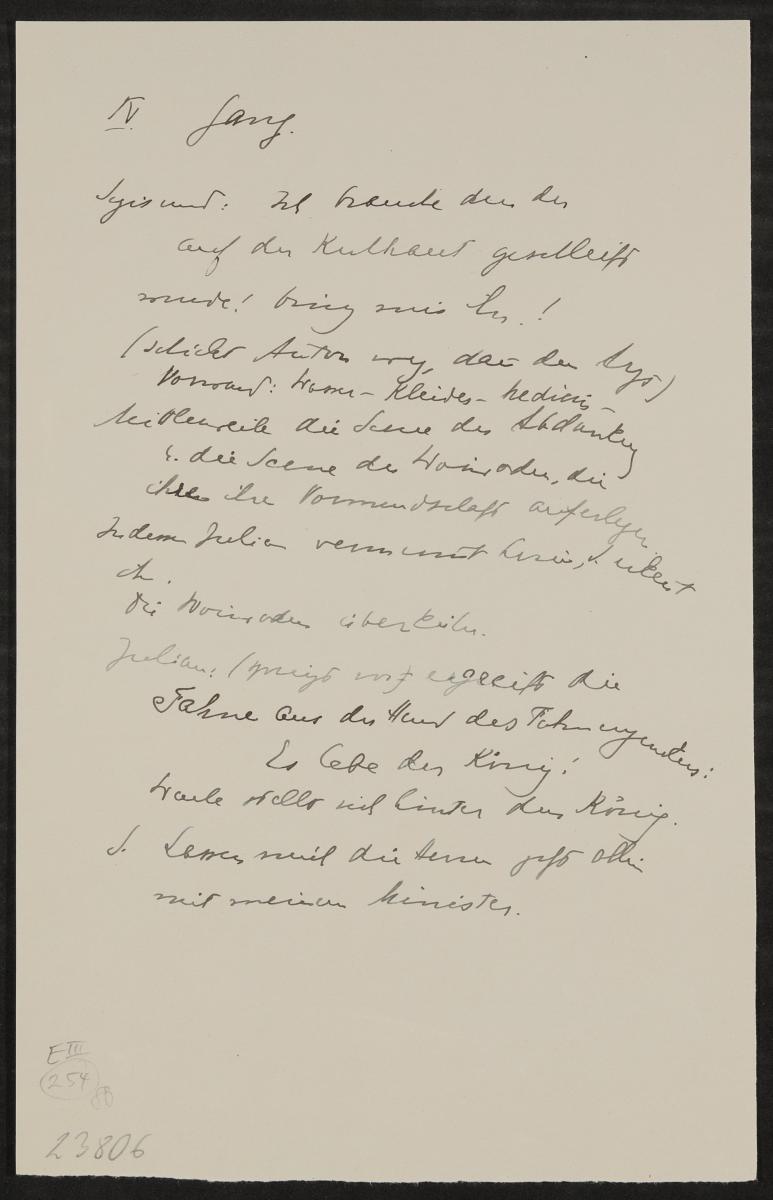 IV Gang.
Sigismund: Ich brauche den der
auf der Kuhhaut geschleift
wurde! bring mir ihn!
(schickt Anton weg, dann den Arzt)
Vorwand: Wasser – Kleider – Medicin –
Mittlerweile die Scene der Abdankung
u. die Scene der Woiwoden, die
ihm ihre Vormundschaft auferlegen.
Indessen Julian vermummt herein,
etc.
Die Woiwoden überkühn.
Julian: (springt vor) ergreift die
Fahne aus der Hand des Fahnenjunkers:
Es lebe der König!
Wache stellt sich hinter den König.
S. Lassen mich die Herren jetzt allein
mit meinem Minister.
E III
254
23806